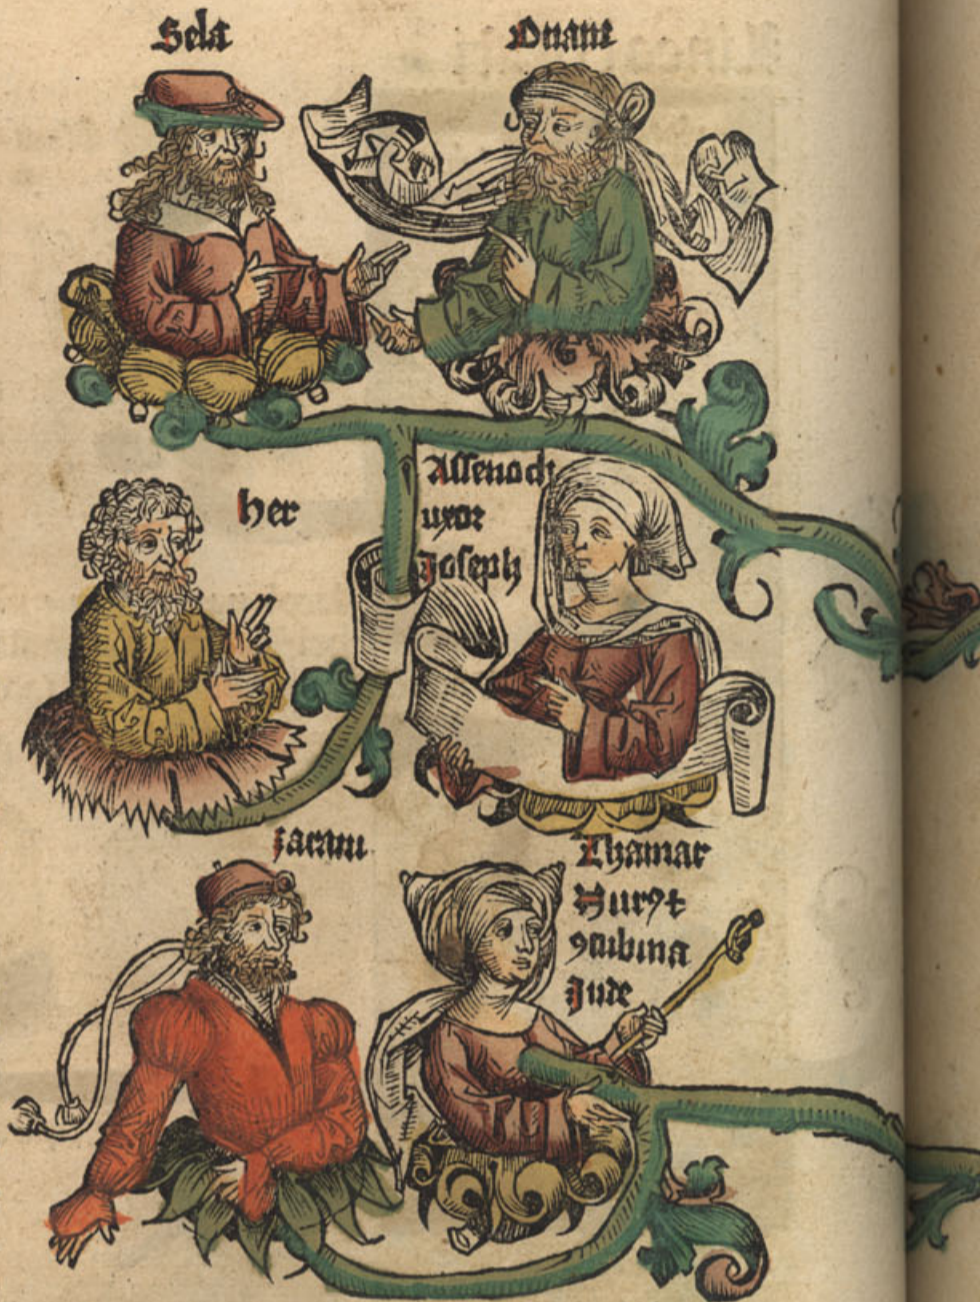 Sela
Onam
her
Assenach
uxor
Joseph
zaram
Thamar
Nurꝰ ⁊
ꝯcubina
Jude